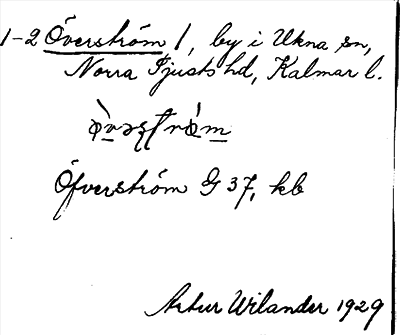 1-2 Överström /, by i Ukna sn,
Norra Tjusts hd, Kalmar l.
Öfverström G 37, kb
Artur Wilander 1929